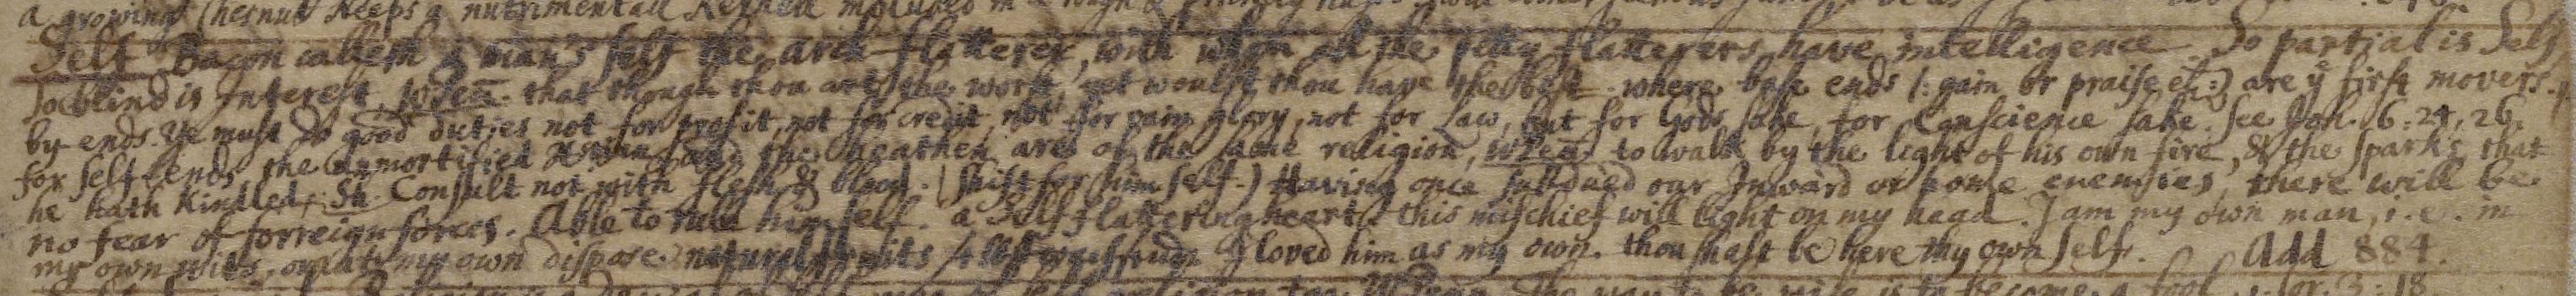 a growing Chesnut keeps a nutrimentall Kernell
Self Bacon calleth a man's self the arch-flatterer, with whom all the petty flatterers have intelligence So partial is Self
so blind is Interest, that though thou art the worst, yet wouldst thou have the best. where base ends (: gain or praise etc:) are ye first movers.
by ends. Ye must do good duties not for profit, not for credit, not for vain glory, not for Law, but for Gods sake, for Conscience sake. See Joh. 6: 24, 26.
for self ends the unmortified the heathen are of the same religion, to walk by the light of his own fire, & the sparks that
he hath kindled, Consult not with flesh & blood. (shift for himself.) Having once subdued our Inward or home enemies, there will be
no fear of forreign forces. Able to rule himself. a Self flattering heart this mischief will light on my head. I am my own man, i.e. in
my own wits, or at my own dispose. I loved him as my own. thou shalt be here thy own self. Add 884.
The way to be wise is to become a fool 1. Cor. 3: 18